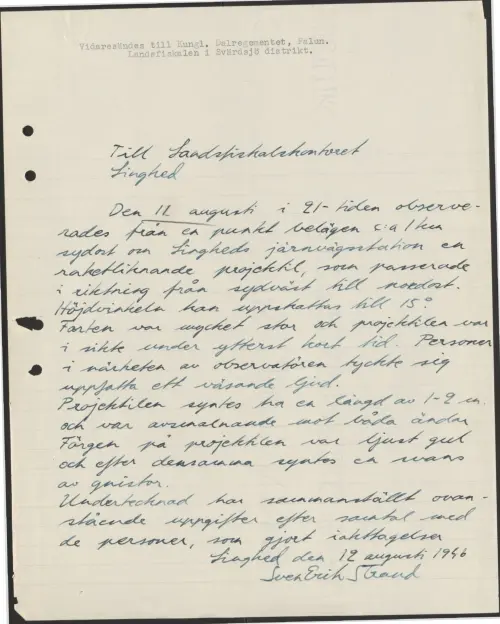 Vidaresändes till Kungl. Dalregementet, Falun.
Landsfiskalen i Svärdsjö distrikt.
Till Landsfiskalskontoret
Linghed
Den 11 augusti i 21-tiden observe-
rades från en punkt belägen c:a 1 km
sydost om Lingheds järnvägsstation en
raketliknande projektil, som passerade
i riktning från sydväst till nordost.
Höjdvinkeln kan uppskattas till 15°.
Farten var mycket stor och projektilen var
i sikte under ytterst kort tid. Personer
i närheten av observatören tyckte sig
uppfatta ett väsande ljud.
Projektilen syntes ha en längd av 1-2 m.
och var avsmalnande mot båda ändar
Färgen på projektilen var ljust gul
och efter densamma syntes en svans
av gnistor.
Undertecknad har sammanställt ovan-
stående uppgifter efter samtal med
de personer, som gjort iakttagelser
Linghed den 12 augusti 1946
Sven Erik Strand